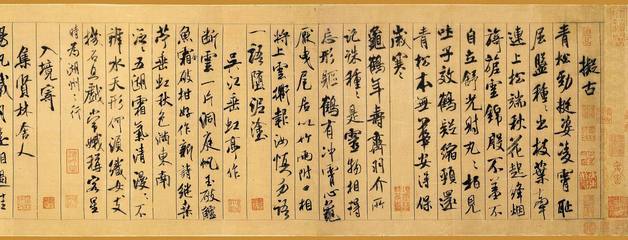 擬古
青松勁挺姿凌霄恥
屈盤種〻出枝葉牽
連上松端秋花起絳烟
旖旎雲錦殷不羞不
自立舒光射丸〻栢見
吐子效鶴疑縮頸還
青松本無華安得保
歲寒
龜鶴年壽齊羽介所
託殊種〻是靈物相得
忘形軀鶴有冲霄心龜
厭曳尾居以竹兩附口相
將上雲衢報汝慎勿語
一語墮泥塗
吳江垂虹亭作
斷雲一片洞庭帆玉破鱸
魚霜破柑好作新詩繼桑
苧垂虹秋色滿東南
泛〻五湖霜氣清漫〻不
辨水天形何須織女支
機石且戲常娥稱客星
時為湖州之行
入境寄
集賢林舍人
揚帆載月遠相過